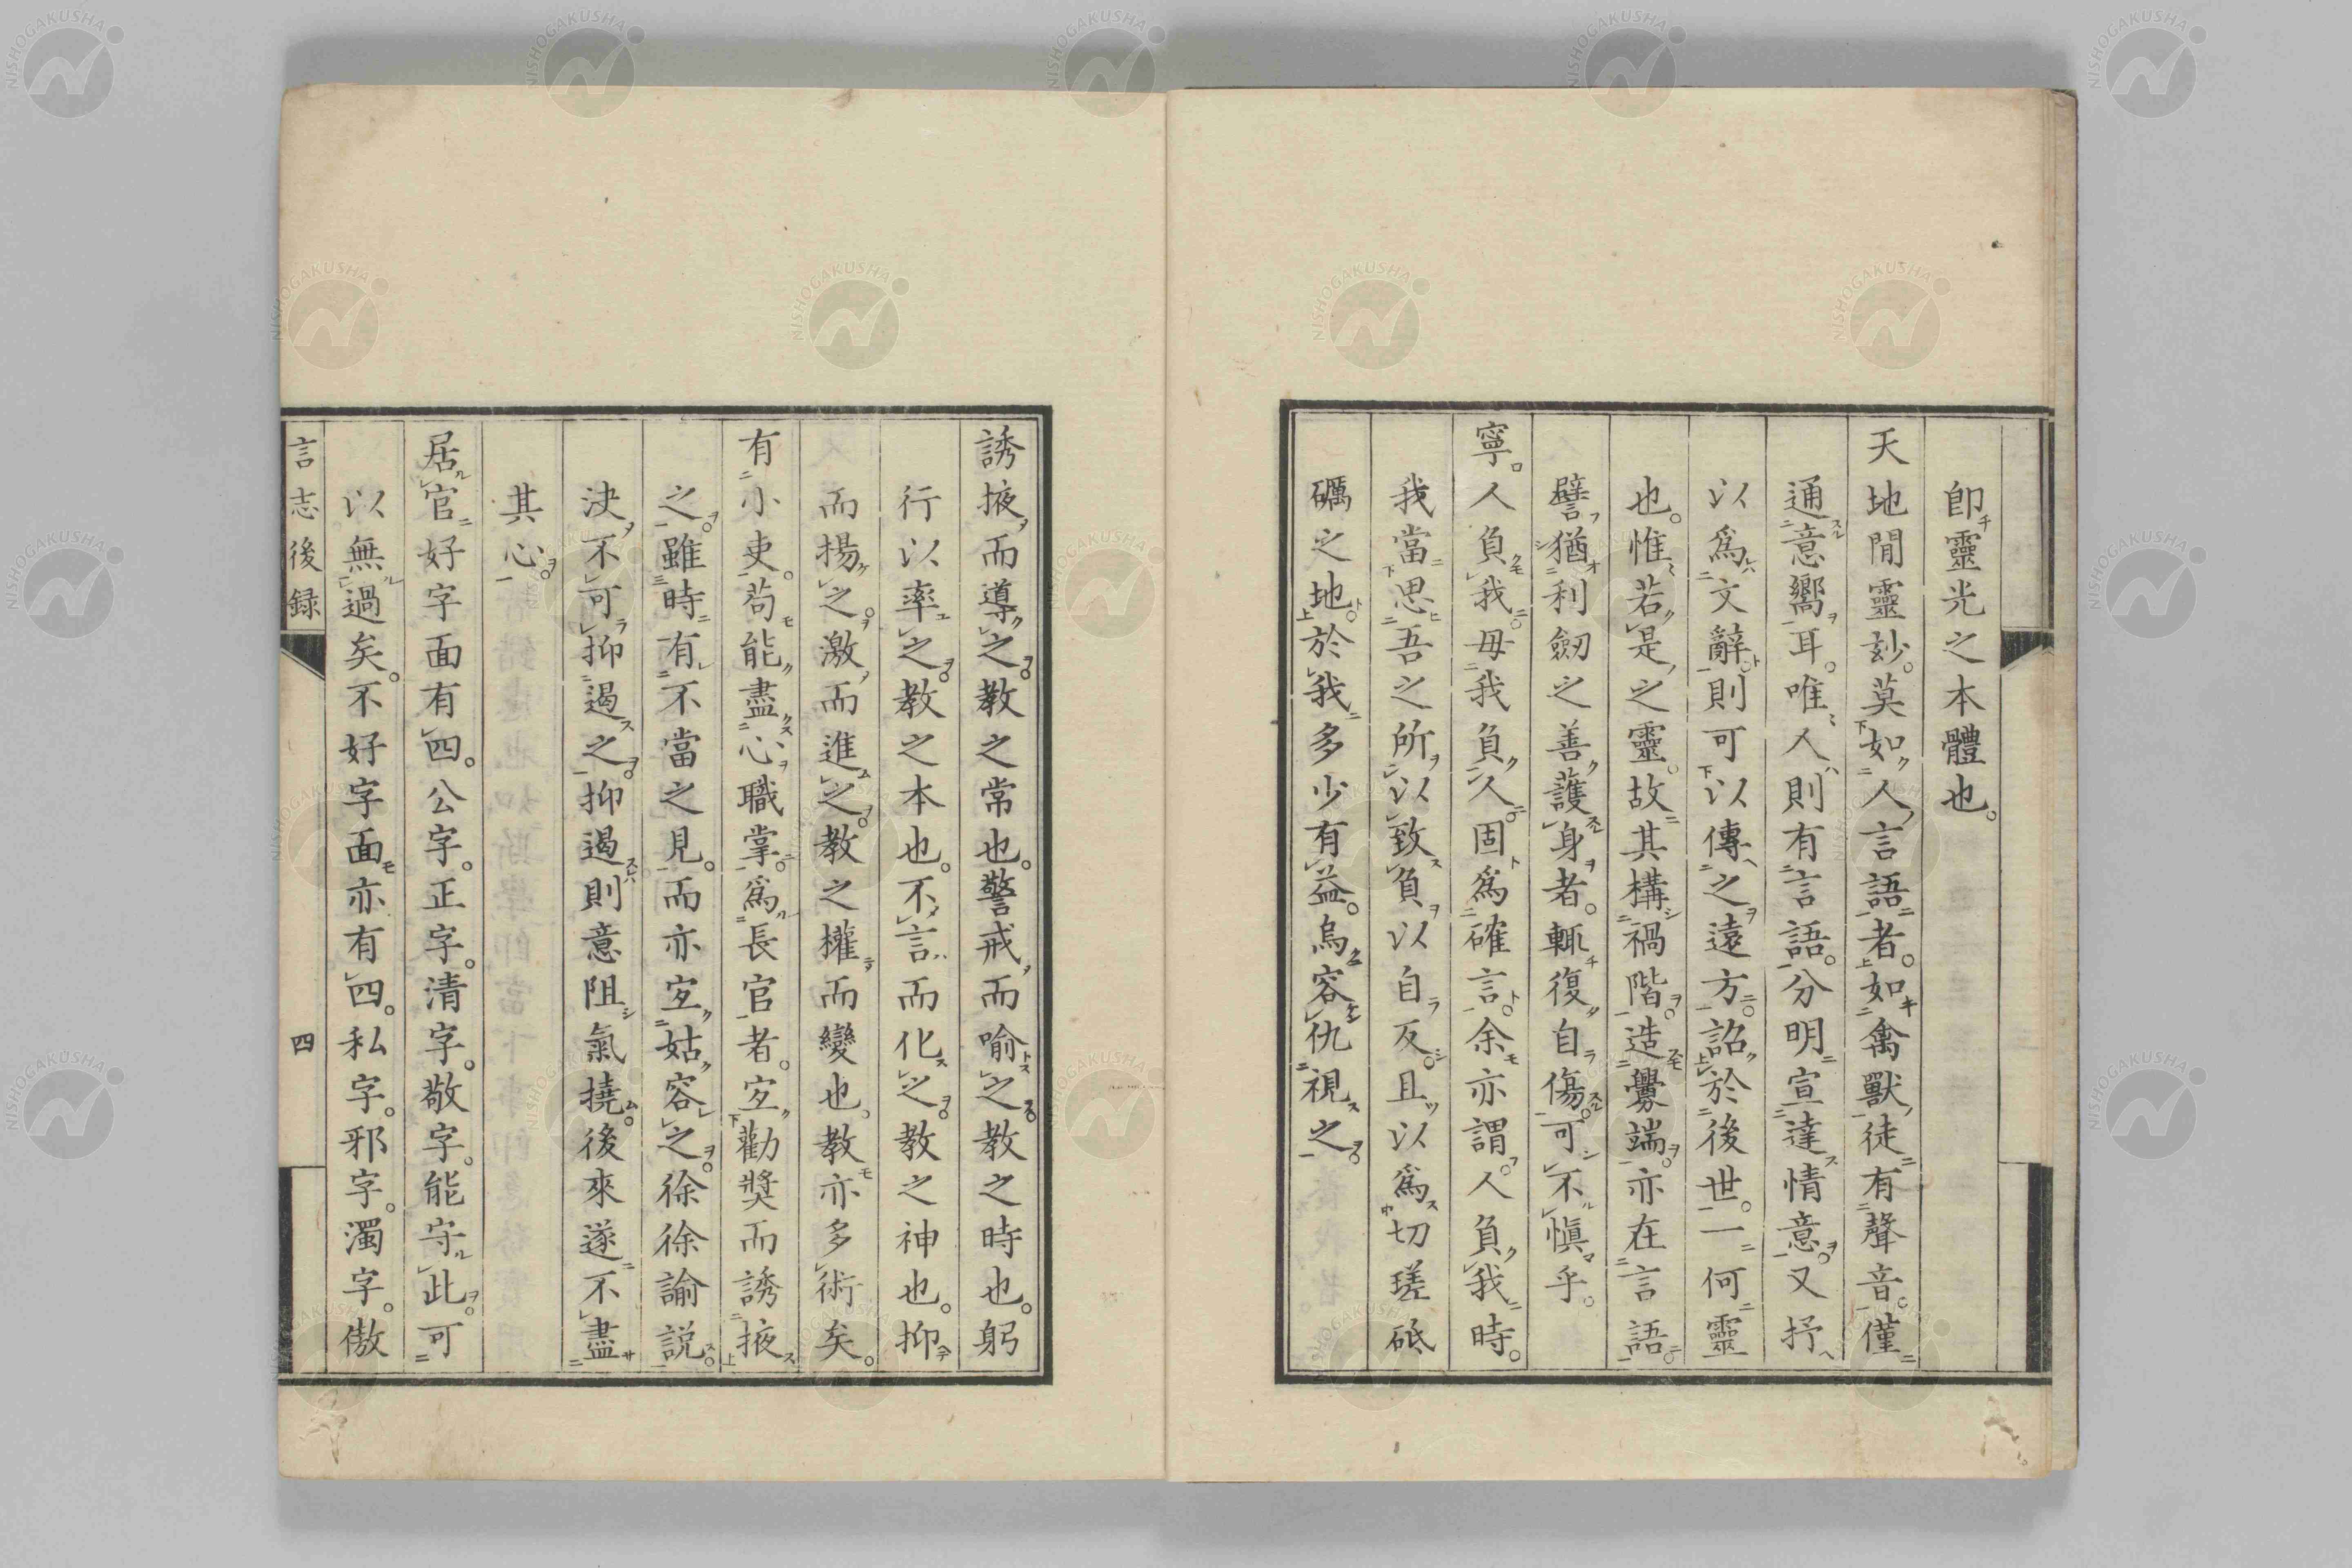 卽靈光之本體也。
天地閒靈玅。莫如人言語者。如禽獸徒有聲音。僅
通意嚮耳。唯人則有言語。分明宣達情意。又抒
以爲文辭。則可以傳之遠方。詔於後世。一何靈
也。惟若是之靈。故其構禍階。造釁端。亦在言語。
譬猶利劒之善護身者。輒復自傷。可不愼乎。
寧人負我。毋我負人。固爲確言。余亦謂。人負我時。
我當思吾之所以致負以自反。且以爲切瑳砥
礪之地。於我多少有益。烏容仇視之。
誘掖而導之。教之常也。警戒而喻之。教之時也。躬
行以率之。教之本也。不言而化之。教之神也。抑
而揚之。激而進之。教之權而變也。教亦多術矣。
有小吏。苟能盡心職掌。爲長官者。宜勸奬而誘掖
之。雖時有不當之見。而亦宜姑容之。徐徐諭説。
決不可抑遏之。抑遏則意阻氣撓。後來遂不盡
其心。
居官好字面有四。公字。正字。清字。敬字。能守此。可
以無過矣。不好字面亦有四。私字。邪字。濁字。傲
言志後録
四
NISHOGAKUSHA